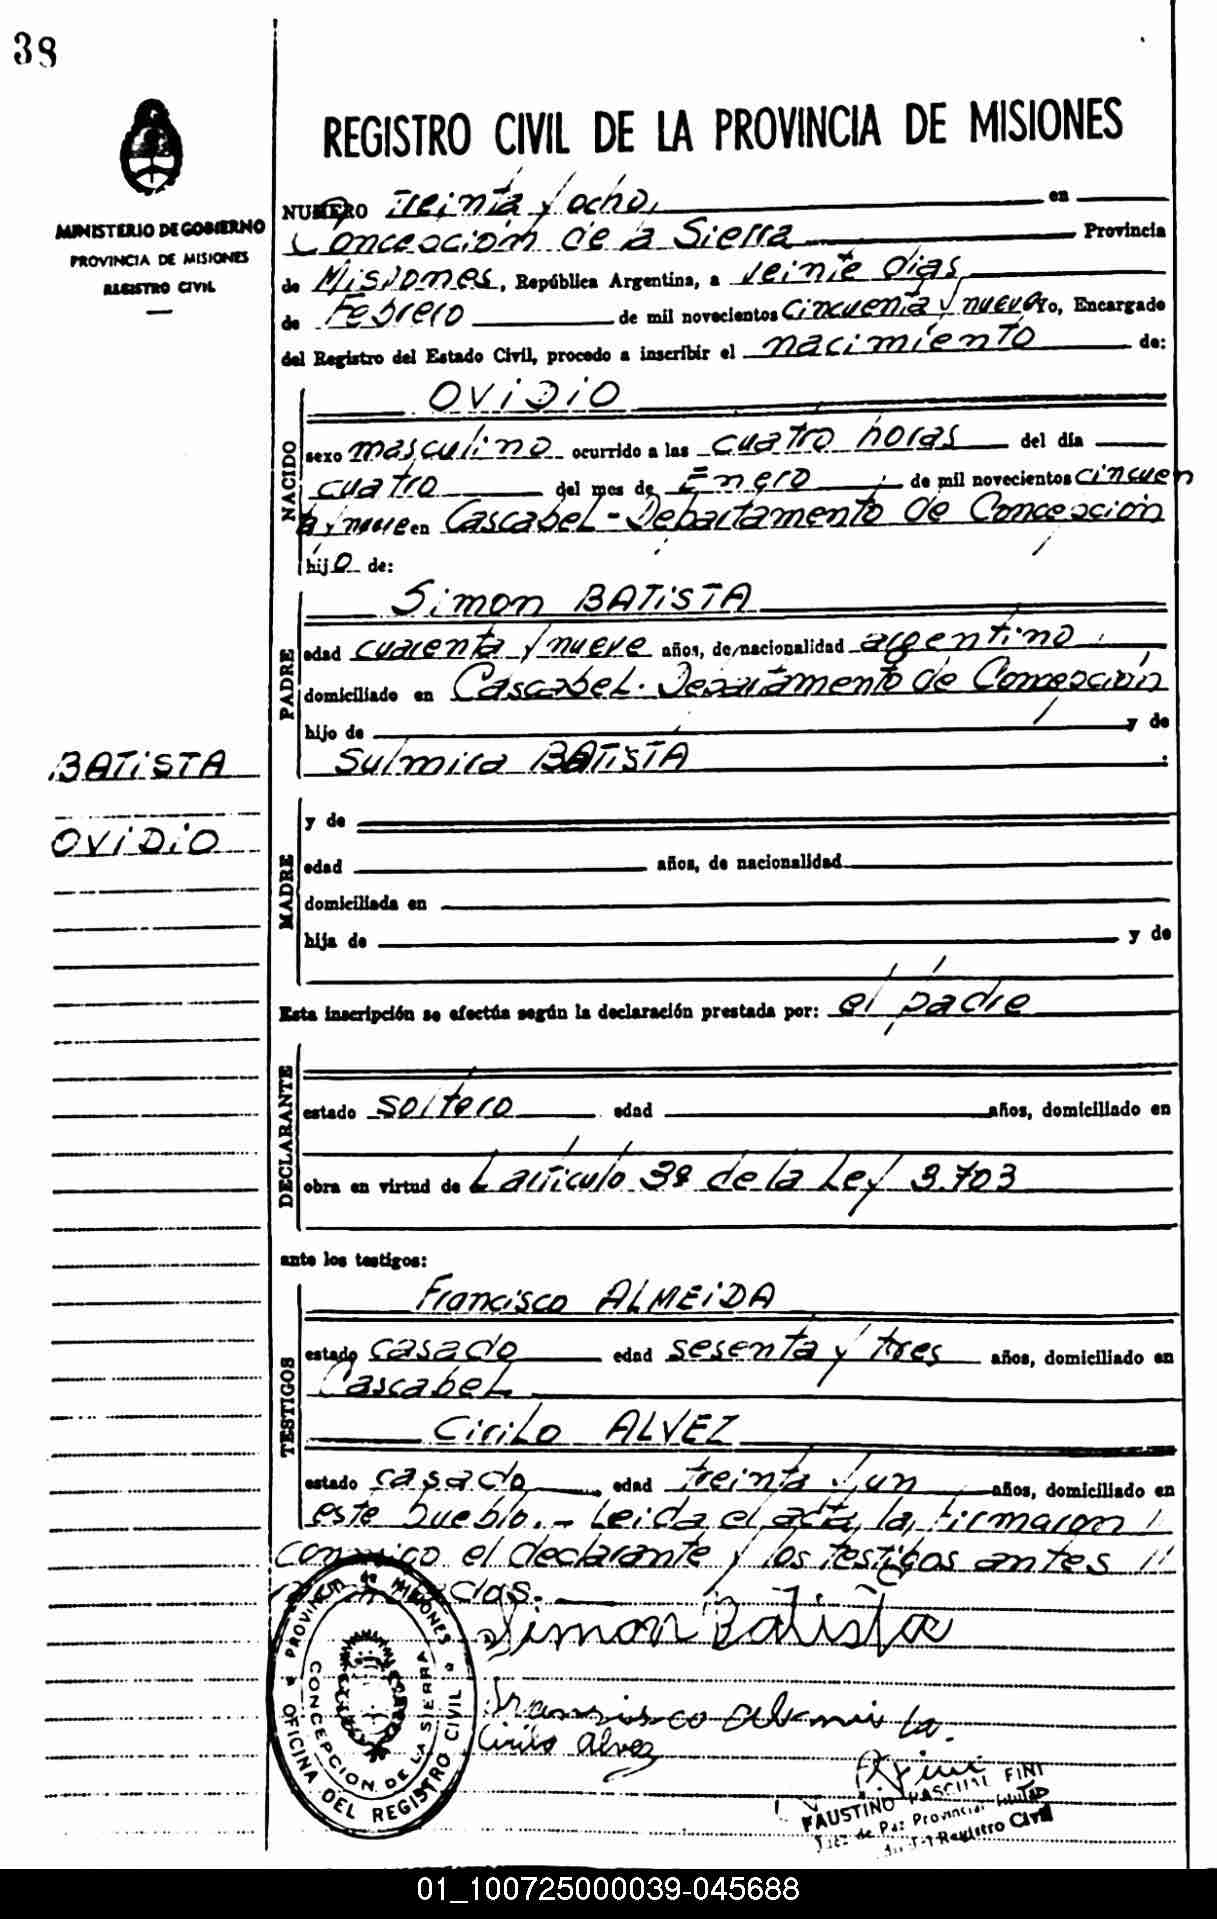 38
REGISTRO CIVIL DE LA PROVINCIA DE MISIONES
MINISTERIO DE GOBIERNO
PROVINCIA DE MISIONES
REGISTRO CIVIL
NUMERO Treinta y ocho, en
Concepción de la Sierra Provincia
de Misiones, República Argentina, a veinte días
de Febrero de mil novecientos cincuenta y nueve Yo, Encargado
del Registro del Estado Civil, procedo a inscribir el nacimiento de:
NACIDO
OViDiO
sexo masculino ocurrido a las cuatro horas del día
cuatro del mes de Enero de mil novecientos cincuen
ta y nueve en Cascabel - Departamento de Concepción
hijo de:
PADRE
Simon BATiSTA
edad cuarenta y nueve años, de nacionalidad argentino
domiciliado en Cascabel. Departamento de Concepción
hijo de y de
Sulmira BATiSTA
BATiSTA
OViDiO
MADRE
y de
edad años, de nacionalidad
domiciliada en
hija de y de
Esta inscripción se efectúa según la declaración prestada por: el padre
DECLARANTE
estado soltero edad años, domiciliado en
obra en virtud de L'artículo 38 de la Ley 3.703
ante los testigos:
TESTIGOS
Francisco ALMEiDA
estado casado edad sesenta y tres años, domiciliado en
Cascabel
Cirilo ALVEZ
estado casado edad treinta y un años, domiciliado en
este pueblo.- Leida el acta, la firmaron
conmigo el declarante y los testigos antes
Simon Batista
Cirilo Alvez
PROVINCIA de MISIONES
OFICINA DEL REGISTRO CIVIL
CONCEPCION DE LA SIERRA
FAUSTINO PASCUAL FINI
Juez de Paz Provincial Titular
Registro Civil
01_100725000039-045688